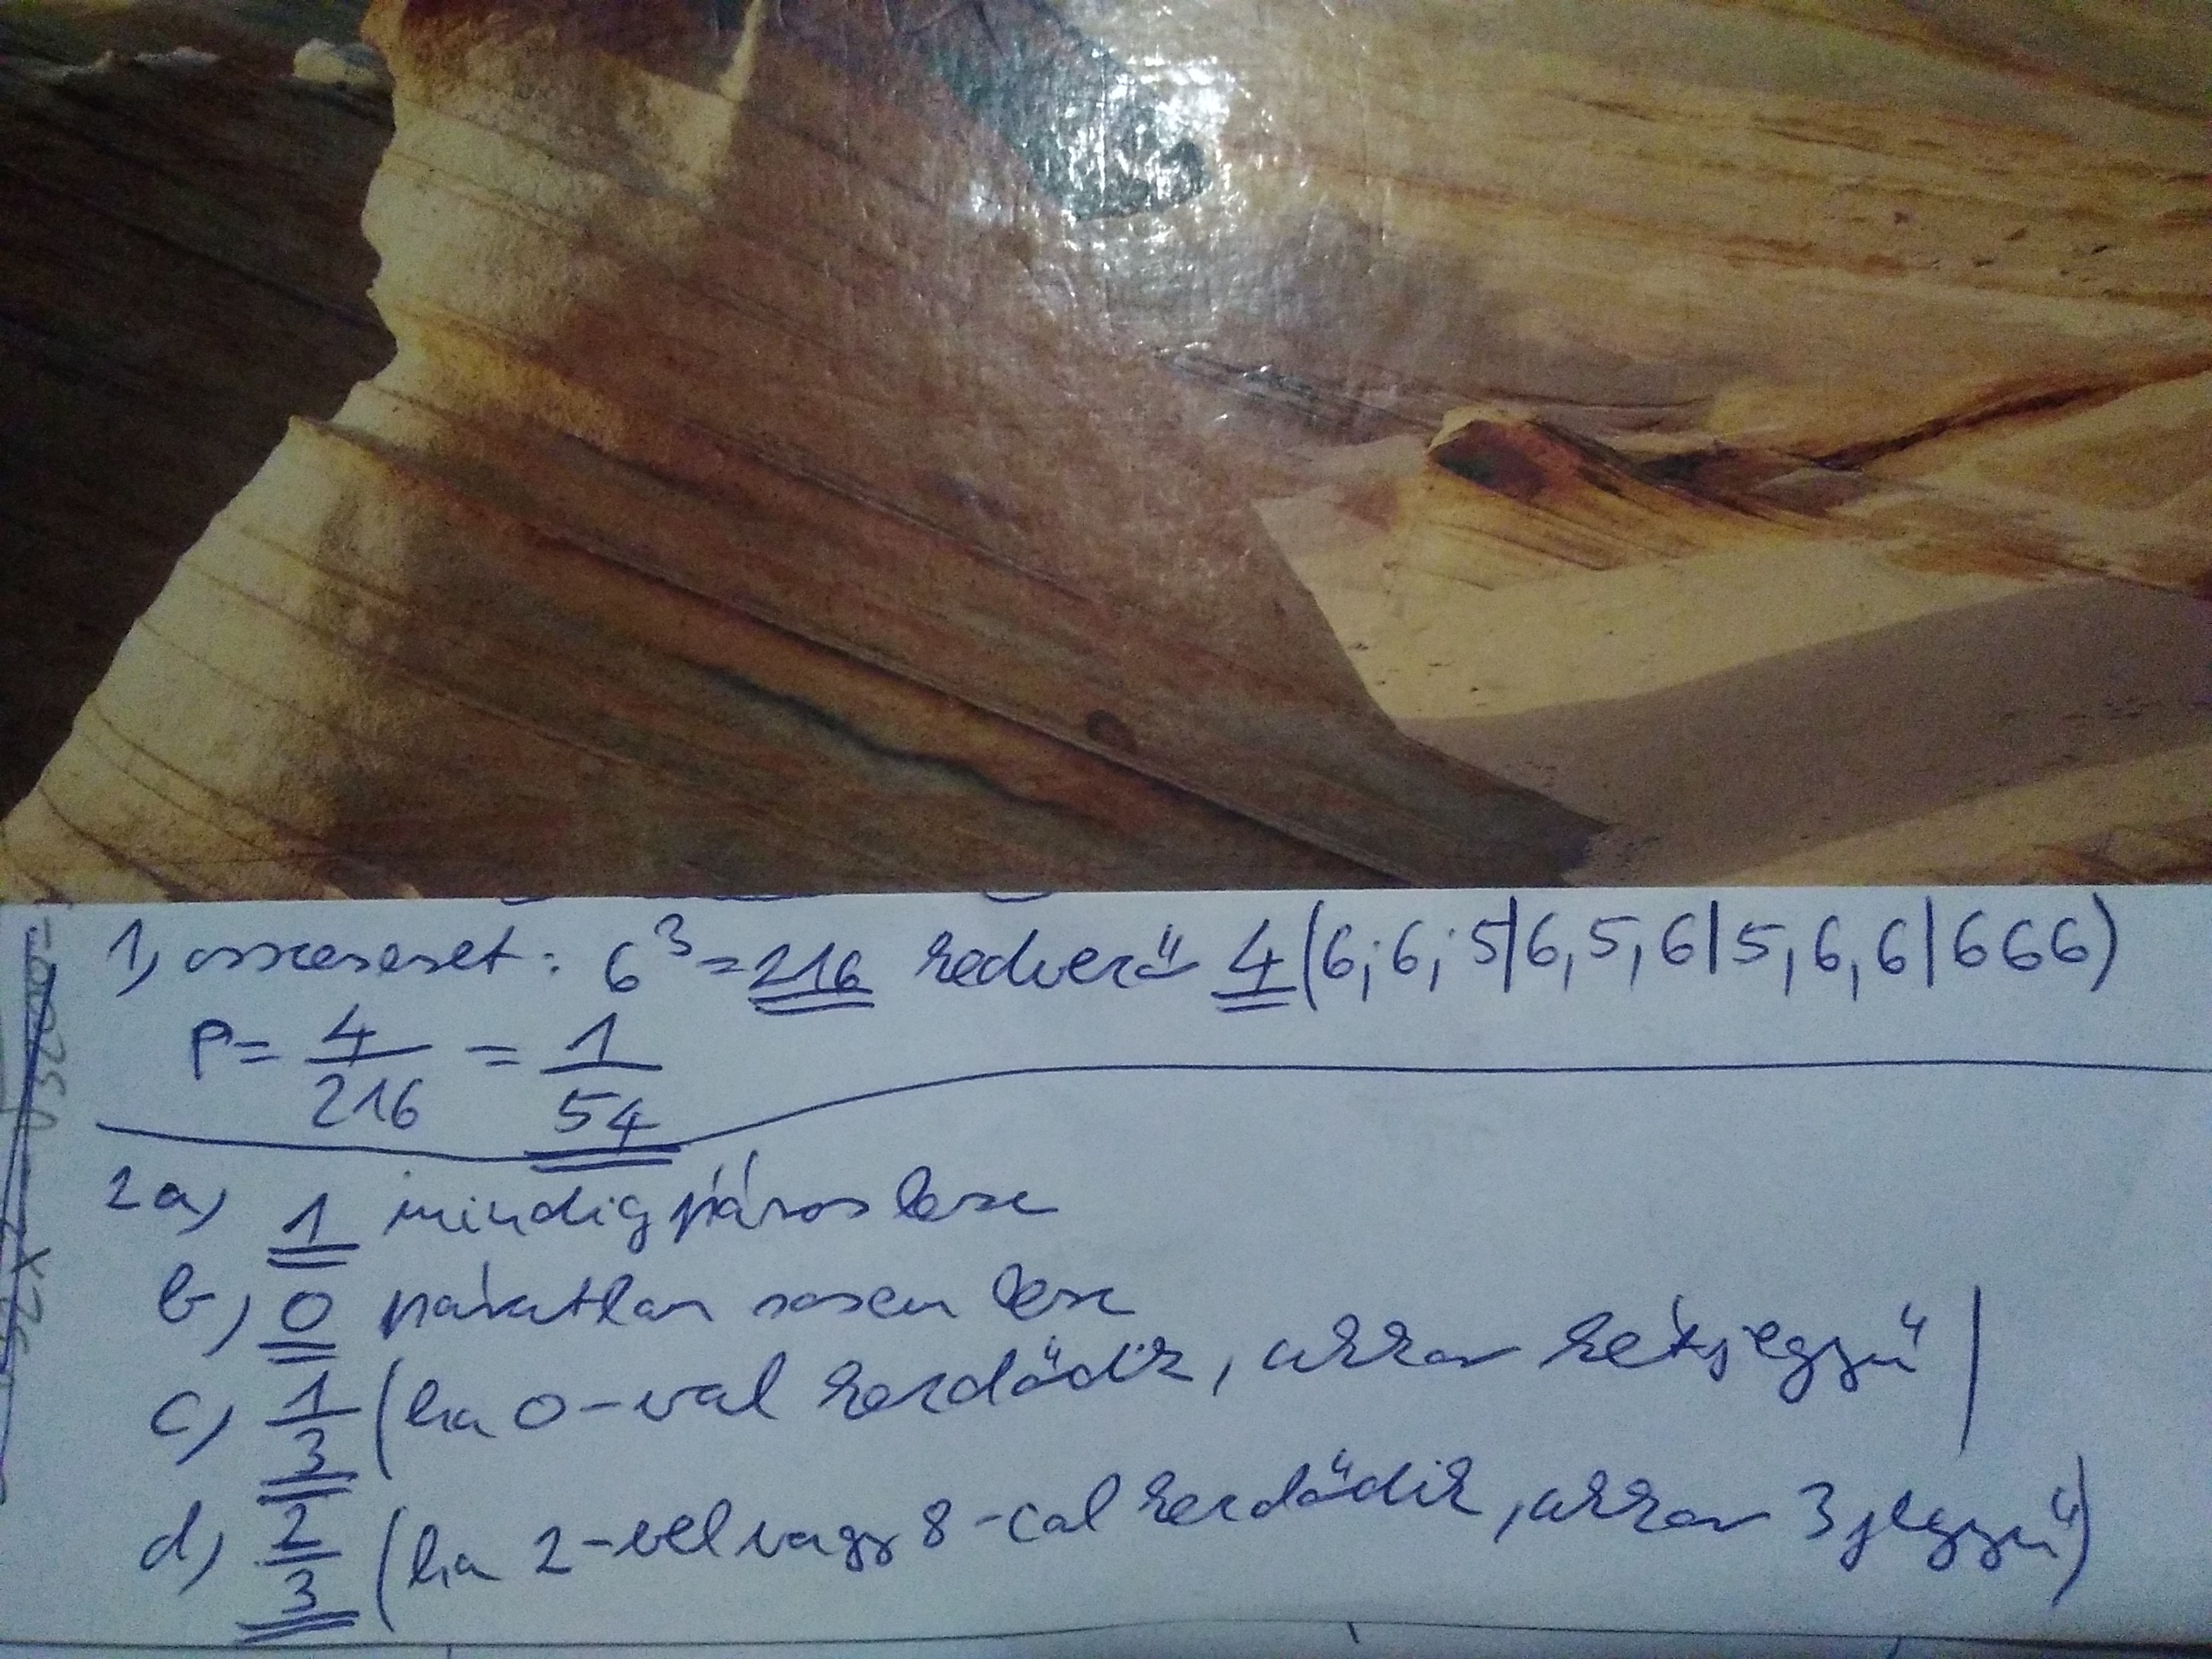 1, összeseset: 6³=216 kedvező 4 (6; 6; 5|6, 5, 6|5, 6, 6|666)
P= 4/216 = 1/54
2a, 1 mindig páros lesz
b, 0 páratlan sosem lesz
c, 1/3 (ha 0-val kezdődik, akkor kétjegyű)
d, 2/3 (ha 2-vel vagy 8-cal kezdődik, akkor 3 jegyű)